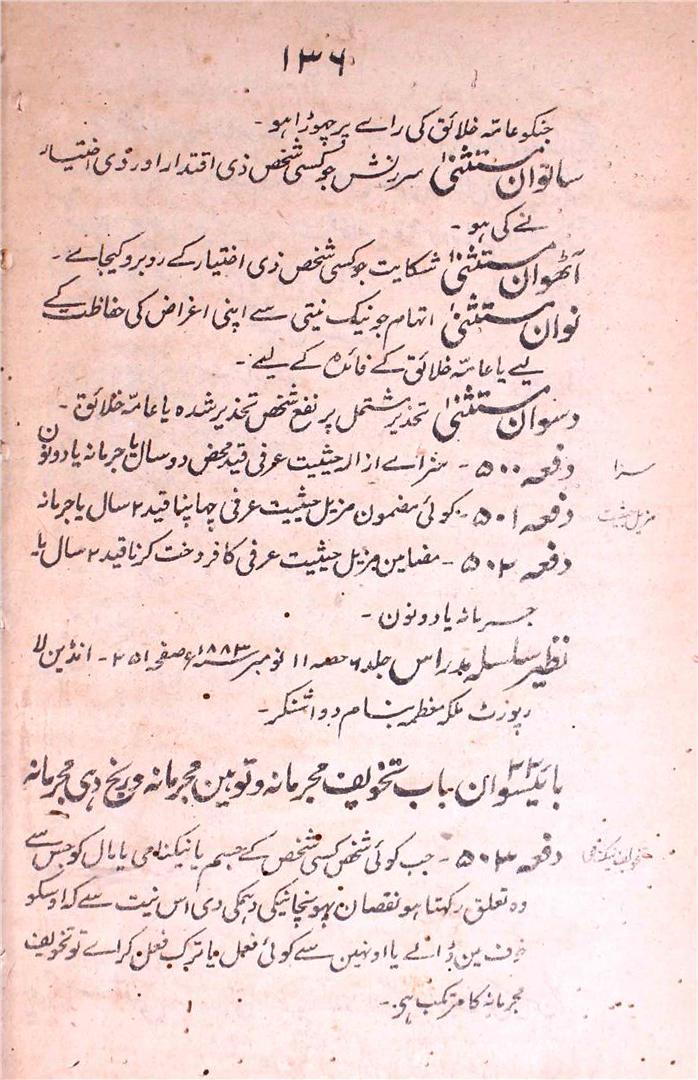 ۱۳۶
جنکو عامہ خلائق کی راے پر چھوڑا ہو۔
ساتوان مستثنیٰ سرزنش جو کسی شخص ذی اقتدار اور ذی اختیار
نے کی ہو۔
آٹھوان مستثنیٰ شکایت جو کسی شخص ذی اختیار کے روبرو کیجاے۔
نوان مستثنیٰ اتہام جو نیک نیتی سے اپنی اغراض کی حفاظت کے
لیے یا عامہ خلائق کے فائدہ کے لیے۔
دسوان مستثنیٰ تحذیر مشتمل بر نفع شخص تحذیر شدہ یا عامہ خلائق۔
سزا
دفعہ ۵۰۰۔ سزاے ازالہ حیثیت عرفی قید محض دو سال یا جرمانہ یا دونون
مزیل حیثیت
دفعہ ۵۰۱۔ کوئی مضمون مزیل حیثیت عرفی چھاپنا قید ۲ سال یا جرمانہ
دفعہ ۵۰۲۔ مضامین مزیل حیثیت عرفی کا فروخت کرنا قید ۲ سال یا
جرمانہ یا دونون۔
نظیر سلسلہ مدراس جلد ۶ حصہ ۱۱ نومبر سنہ ۱۸۸۳ء صفحہ ۲۵۱۔ انڈین لا
رپورٹ ملکہ معظمہ بنام
بائیسوان باب تخویف مجرمانہ و توہین مجرمانہ و رنج دہی مجرمانہ
دفعہ ۵۰۳۔ جب کوئی شخص کسی شخص کے جسم یا نیکنامی یا مال کو جس سے
وہ تعلق رکھتا ہو نقصان پہونچانیکی دہمکی دی اس نیت سے کہ اوسکو
خوف مین ڈالے یا اونہین سے کوئی فعل یا ترک فعل کراے تو تخویف
مجرمانہ کا مرتکب ہی۔